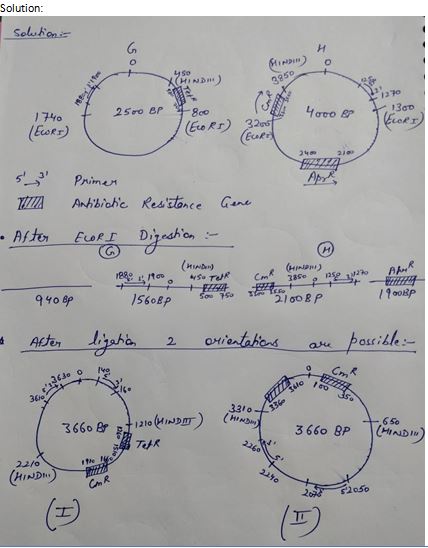 Solution:
Solution:-
G
0
450
(HINDIII)
TetR
800
(EcoRI)
1740
(EcoRI)
1880
1900
2500 BP
H
0
(HINDIII)
3850
CmR
3200
(EcoRI)
1270
1300
(EcoRI)
4000 BP
2400
2100
AprR
5' → 3' Primer
Antibiotic Resistance Gene
• After EcoRI Digestion :-
G
H
940BP
1880
5'
1900
0
(HINDIII)
450
TetR
500 750
1560BP
CmR
3500 3550
(HINDIII)
3850
0
1250
1270
2100BP
AprR
1900BP
After ligation 2 orientations are possible:-
3610
3630
0
140
160
3660 BP
1210 (HINDIII)
TetR
1910
CmR
2210
(HINDIII)
(I)
0
CmR
100
350
3310
(HINDIII)
3360
3610
650
(HINDIII)
3660 BP
2260
2240
2070
5'2050
(II)